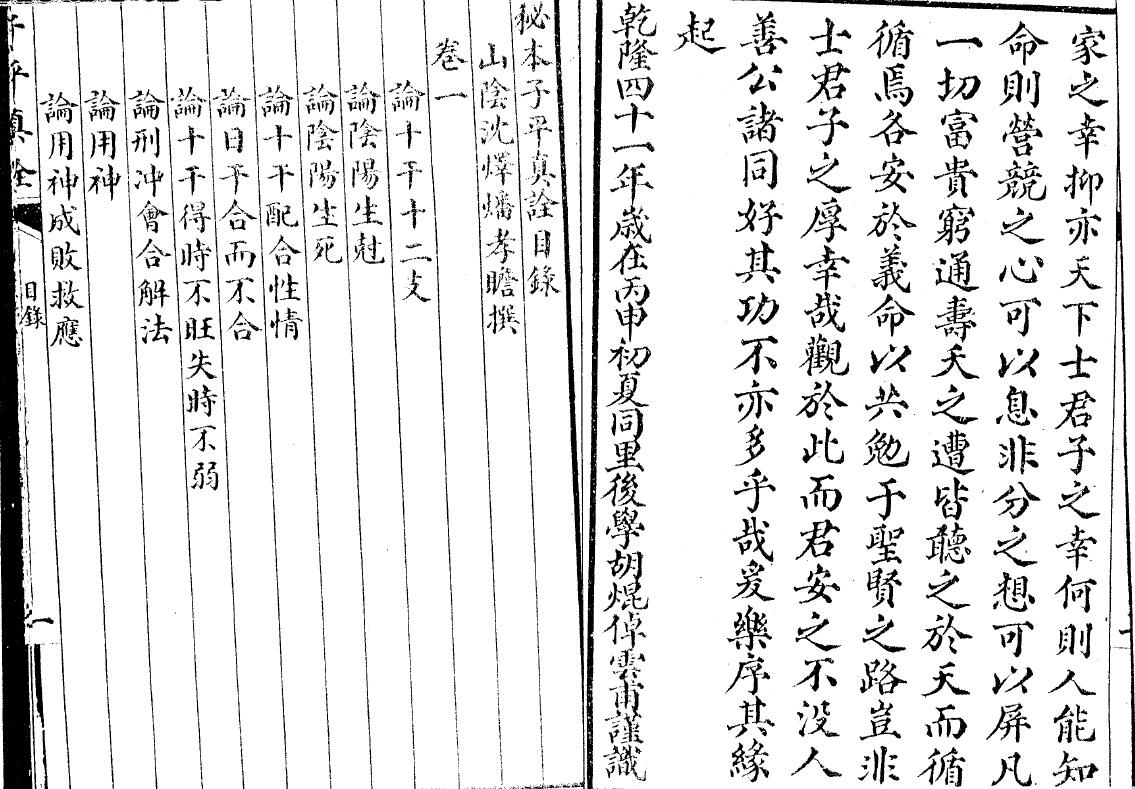 家之幸抑亦天下士君子之幸何則人能知
命則營競之心可以息非分之想可以屏凡
一切富貴窮通壽夭之遭皆聽之於天而循
循焉各安於義命以共勉于聖賢之路豈非
士君子之厚幸哉觀於此而君安之不没人
善公諸同好其功不亦多乎哉爰樂序其緣
起
乾隆四十一年歳在丙申初夏同里後學胡焜倬雲甫謹識
秘本子平真詮目錄
山陰沈燡燔孝瞻撰
卷一
論十干十二支
論陰陽生尅
論陰陽生死
論十干配合性情
論日干合而不合
論十干得時不旺失時不弱
論刑冲會合解法
論用神
論用神成敗救應
子平真詮
目錄
一